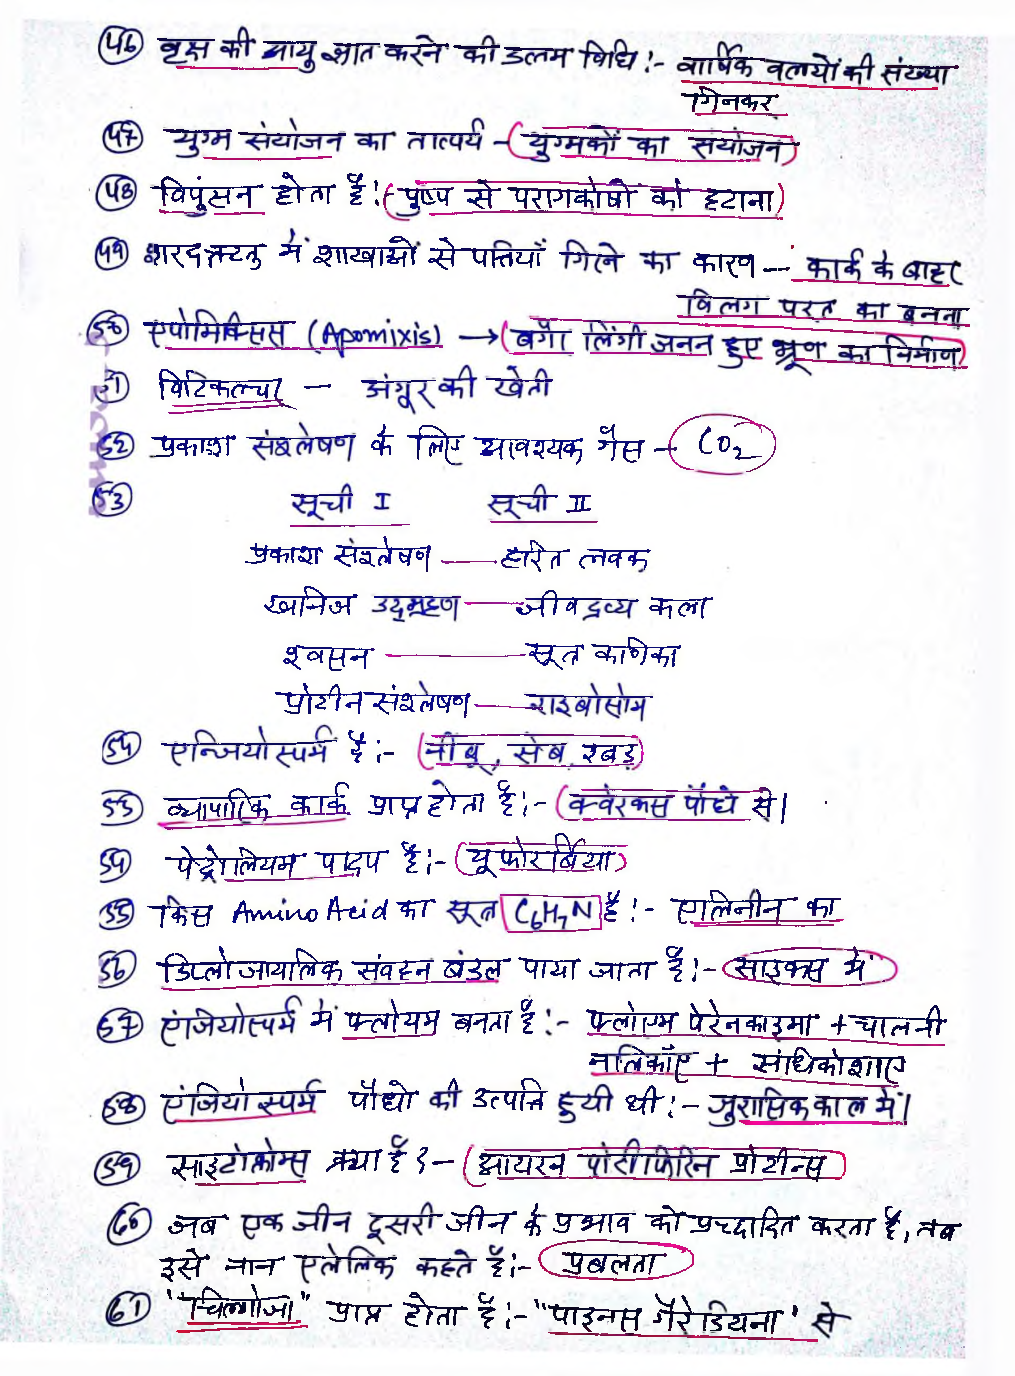 (46) वृक्ष की आयु ज्ञात करने की उत्तम विधि :- वार्षिक वलयों की संख्या
गिनकर
(47) युग्म संयोजन का तात्पर्य - (युग्मकों का संयोजन)
(48) विपुंसन होता है :- (पुष्प से परागकोषों को हटाना)
(49) शरदऋतु में शाखाओं से पत्तियाँ गिरने का कारण -- कार्क के बाहर
विलग परत का बनना
(50) एपोमिक्सिस (Apomixis) → (बगैर लिंगी जनन हुए भ्रूण का निर्माण)
(51) विटिकल्चर - अंगूर की खेती
(52) प्रकाश संश्लेषण के लिए आवश्यक गैस - CO₂
(53)
सूची I सूची II
प्रकाश संश्लेषण — हरित लवक
खनिज उद्ग्रहण — जीवद्रव्य कला
श्वसन — सूत्र कणिका
प्रोटीन संश्लेषण — राइबोसोम
(54) एन्जियोस्पर्म है :- (नीबू, सेब, रबड़)
(55) व्यापारिक कार्क प्राप्त होता है :- (क्वेरकस पौधे से।
(54) पेट्रोलियम पादप है :- (यूफोरबिया)
(55) किस Amino Acid का सूत्र C₆H₇N है :- एलिनीन का
(56) डिप्लोजायलिक संवहन बंडल पाया जाता है :- साइकस में
(57) एंजियोस्पर्म में फ्लोयम बनता है :- फ्लोएम पेरेनकाइमा + चालनी
नलिकाँए + संधिकोशाए
(58) एंजियोस्पर्म पौधो की उत्पत्ति हुयी थी :- जुरासिक काल में।
(59) साइटोक्रोम्स क्या है ? - (आयरन पोरीफिरिन प्रोटीन्स)
(60) जब एक जीन दूसरी जीन के प्रभाव को प्रच्दादित करता है, तब
इसे नान एलेलिक कहते है :- प्रबलता
(61) "चिल्गोजा" प्राप्त होता है :- "पाइनस गैरेडियना" से